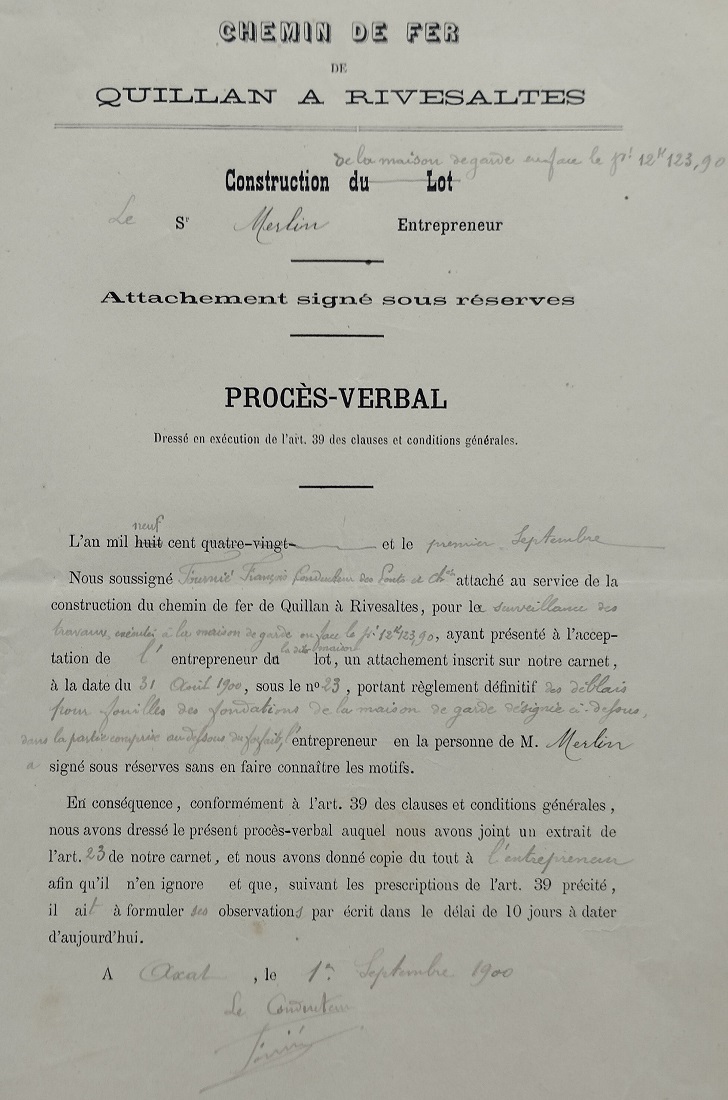 CHEMIN DE FER
DE
QUILLAN A RIVESALTES
de la maison de garde en face le pt 12K123,90
Construction du Lot
Le Sr Merlin Entrepreneur
Attachement signé sous réserves
PROCÈS-VERBAL
Dressé en exécution de l'art. 39 des clauses et conditions générales.
neuf
L'an mil huit cent quatre-vingt- et le premier Septembre
Nous soussigné Fournié François Conducteur des Ponts et Ch ées attaché au service de la
construction du chemin de fer de Quillan à Rivesaltes, pour la surveillance des
travaux exécutés à la maison de garde en face le pt 12K123,90, ayant présenté à l'accep-
la dite maison
tation de l' entrepreneur du lot, un attachement inscrit sur notre carnet,
à la date du 31 Août 1900, sous le no 23, portant règlement définitif des déblais
pour fouilles des fondations de la maison de garde désignée ci-dessus,
dans la partie comprise au dessous du forfait, l'entrepreneur en la personne de M. Merlin
a signé sous réserves sans en faire connaître les motifs.
En conséquence, conformément à l'art. 39 des clauses et conditions générales,
nous avons dressé le présent procès-verbal auquel nous avons joint un extrait de
l'art. 23 de notre carnet, et nous avons donné copie du tout à l'entrepreneur
afin qu'il n'en ignore et que, suivant les prescriptions de l'art. 39 précité,
il ait à formuler ses observations par écrit dans le délai de 10 jours à dater
d'aujourd'hui.
A Axat, le 1er Septembre 1900
Le Conducteur